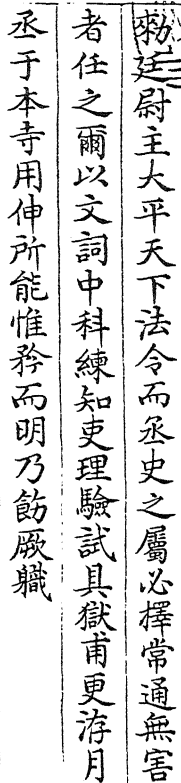 勑廷尉主大平天下法令而丞史之屬必擇常通無害
者任之爾以文詞中科練知吏理驗試具獄甫更洊月
丞于本寺用伸所能惟矜而明乃飭厥職